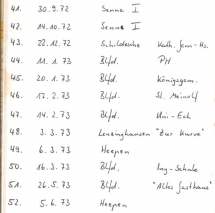 41. 30.9.72 Senne I
42. 14.10.72 Senne I
43. 22.12.72 Schildesche Kath. Fam.-Ks.
44. 11.1.73 Blfd. PH
45. 20.1.73 Blfd. Königsgym.
46. 17.2.73 Blfd. St. Meinolf
47. 14.2.73 Blfd. Uni-Esh
48. 3.3.73 Lenzinghausen "Zur Kurve"
49. 6.3.73 Heepen
50. 16.3.73 Blfd. Ing.-Schule
51. 26.5.73 Blfd. "Altes Gasthaus"
52. 5.6.73 Heepen